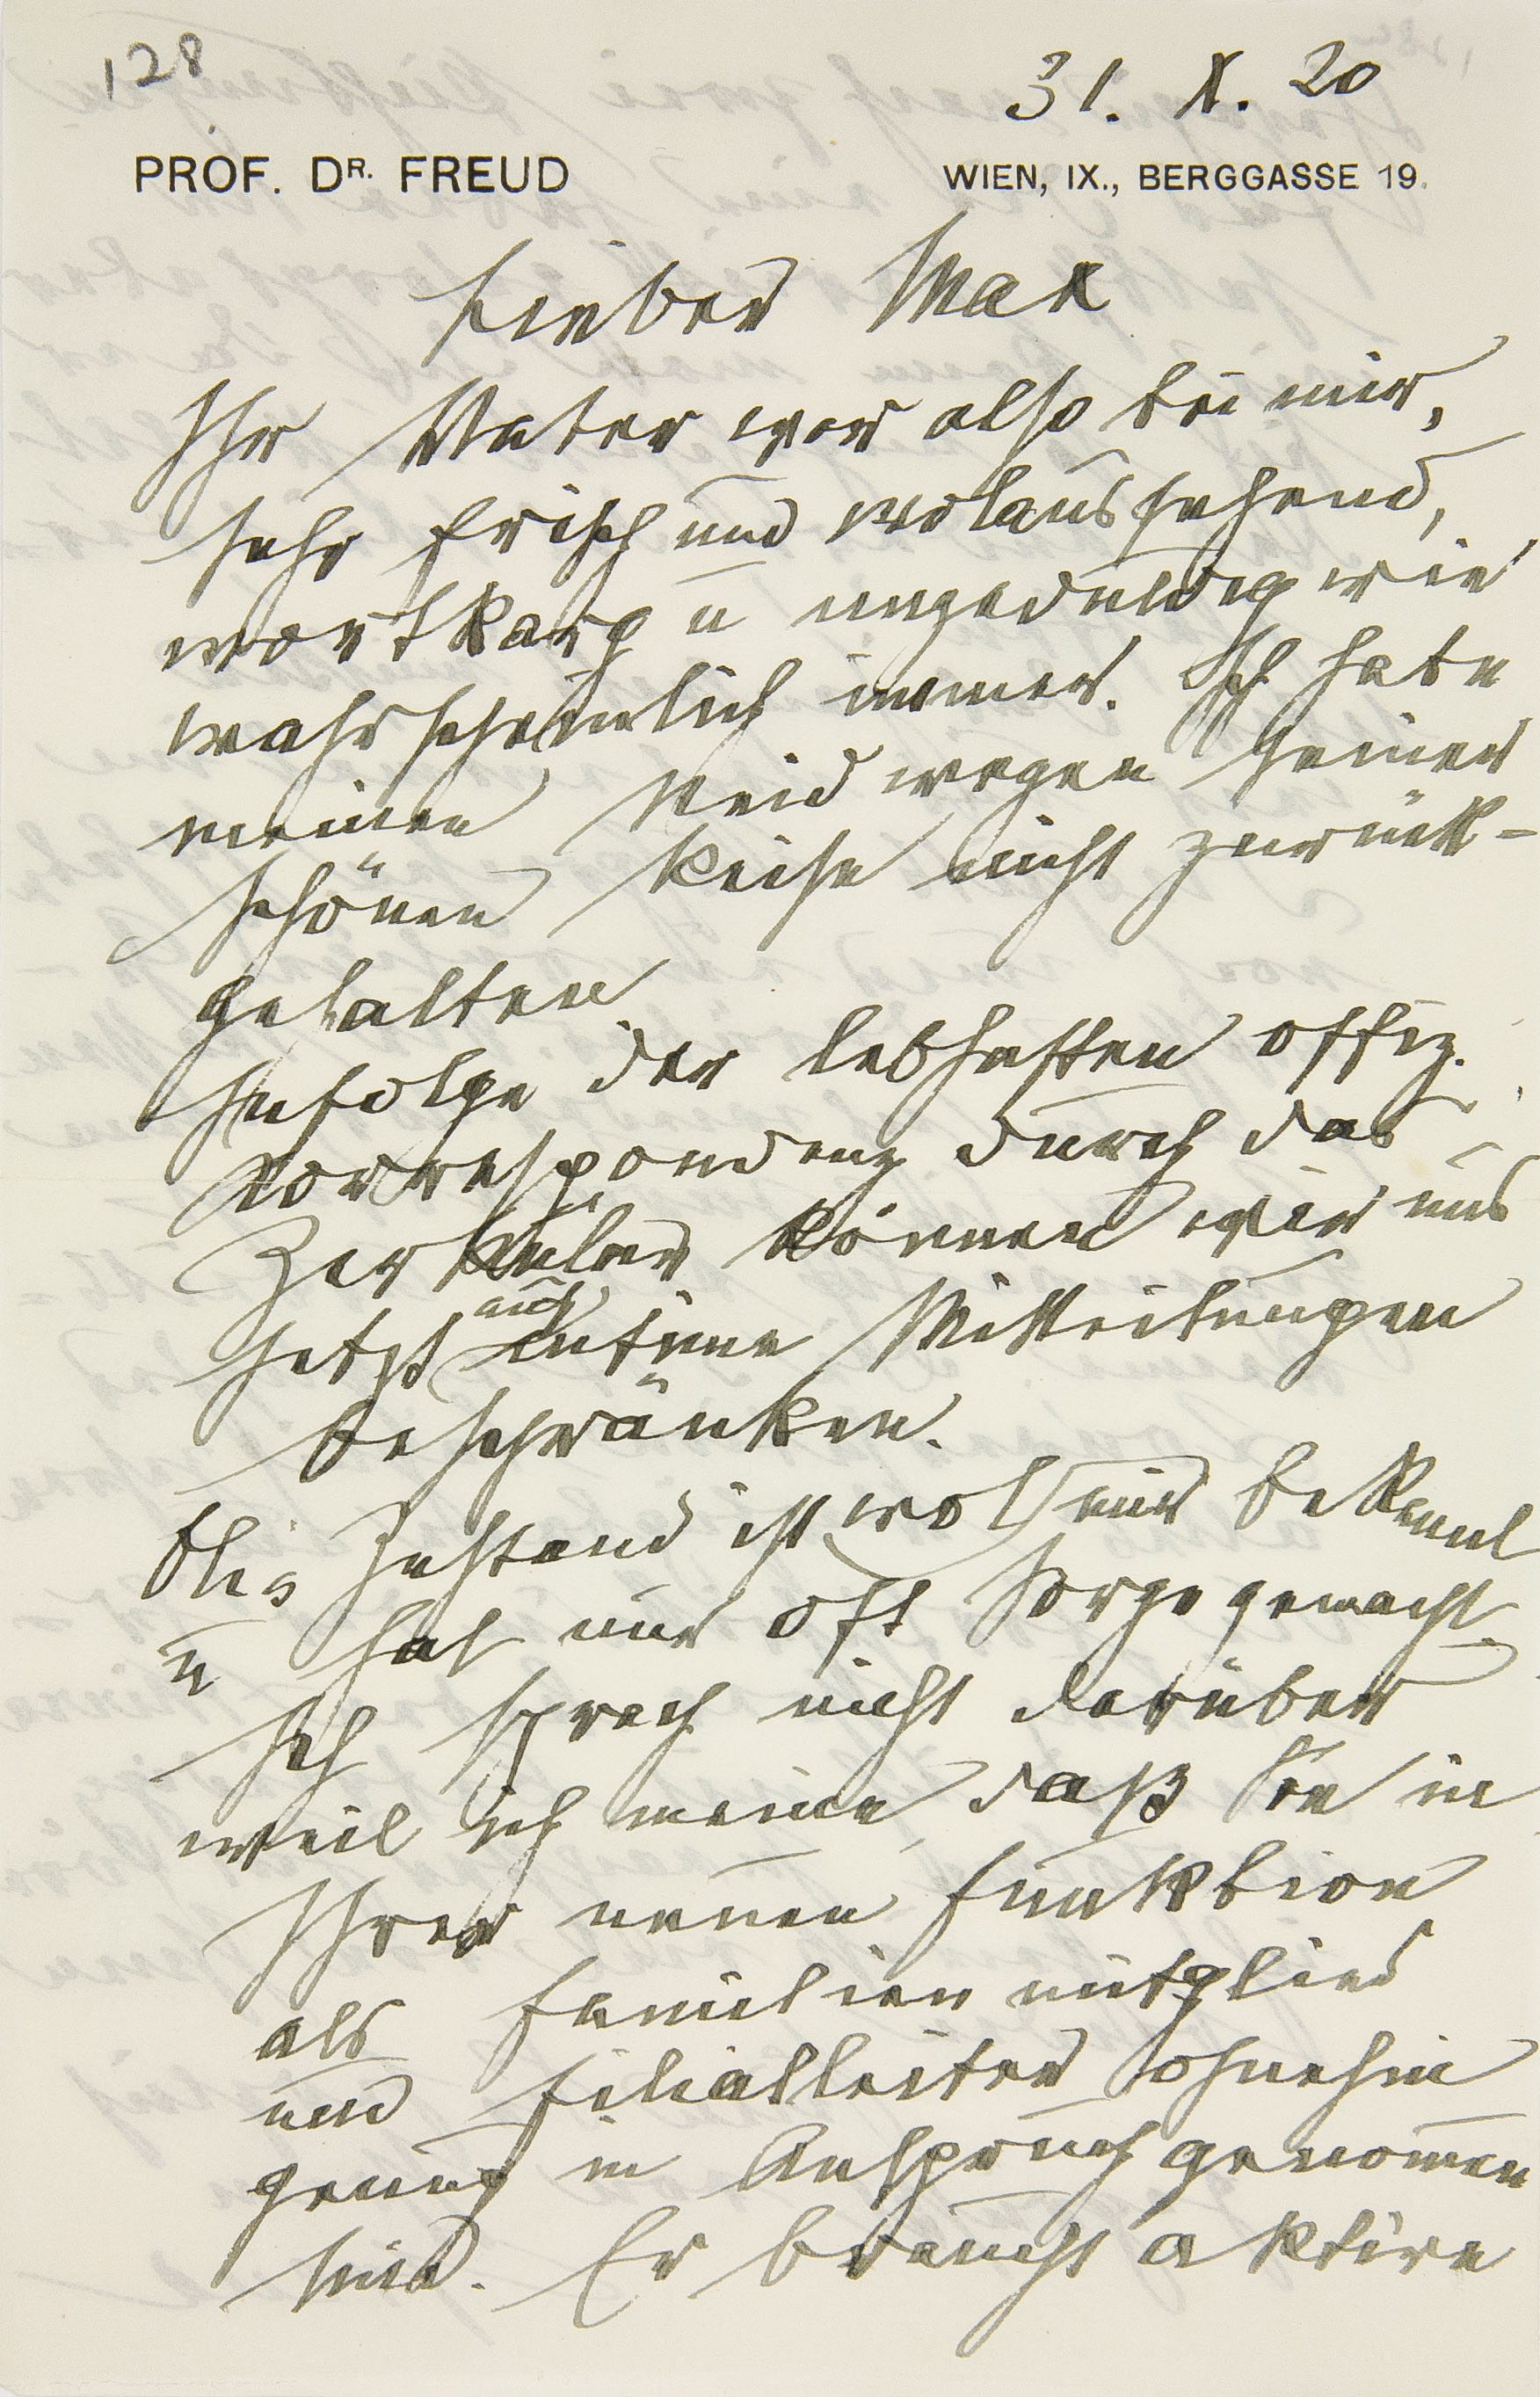 128
31. X. 20
PROF. DR. FREUD WIEN, IX., BERGGASSE 19.
Lieber Max
Ihr Vater war also bei mir,
sehr frisch und wolaussehend,
wortkarg u ungeduldig wie
wahrscheinlich immer. Ich habe
meinen Neid wegen seiner
schönen Reise nicht zurück-
gehalten.
Infolge der lebhaften offiz.
Korrespondenz durch das
Zirkular können wir uns
jetzt auf intime Mitteilungen
beschränken.
Olis Zustand ist wol mir bekannt
u hat mir oft Sorge gemacht.
Ich sprach nicht darüber
weil ich meine, daß Sie in
Ihrer neuen Funktion
als Familienmitglied
und Filialleiter ohnehin
genug in Anspruch genommen
sind. Er braucht aktive